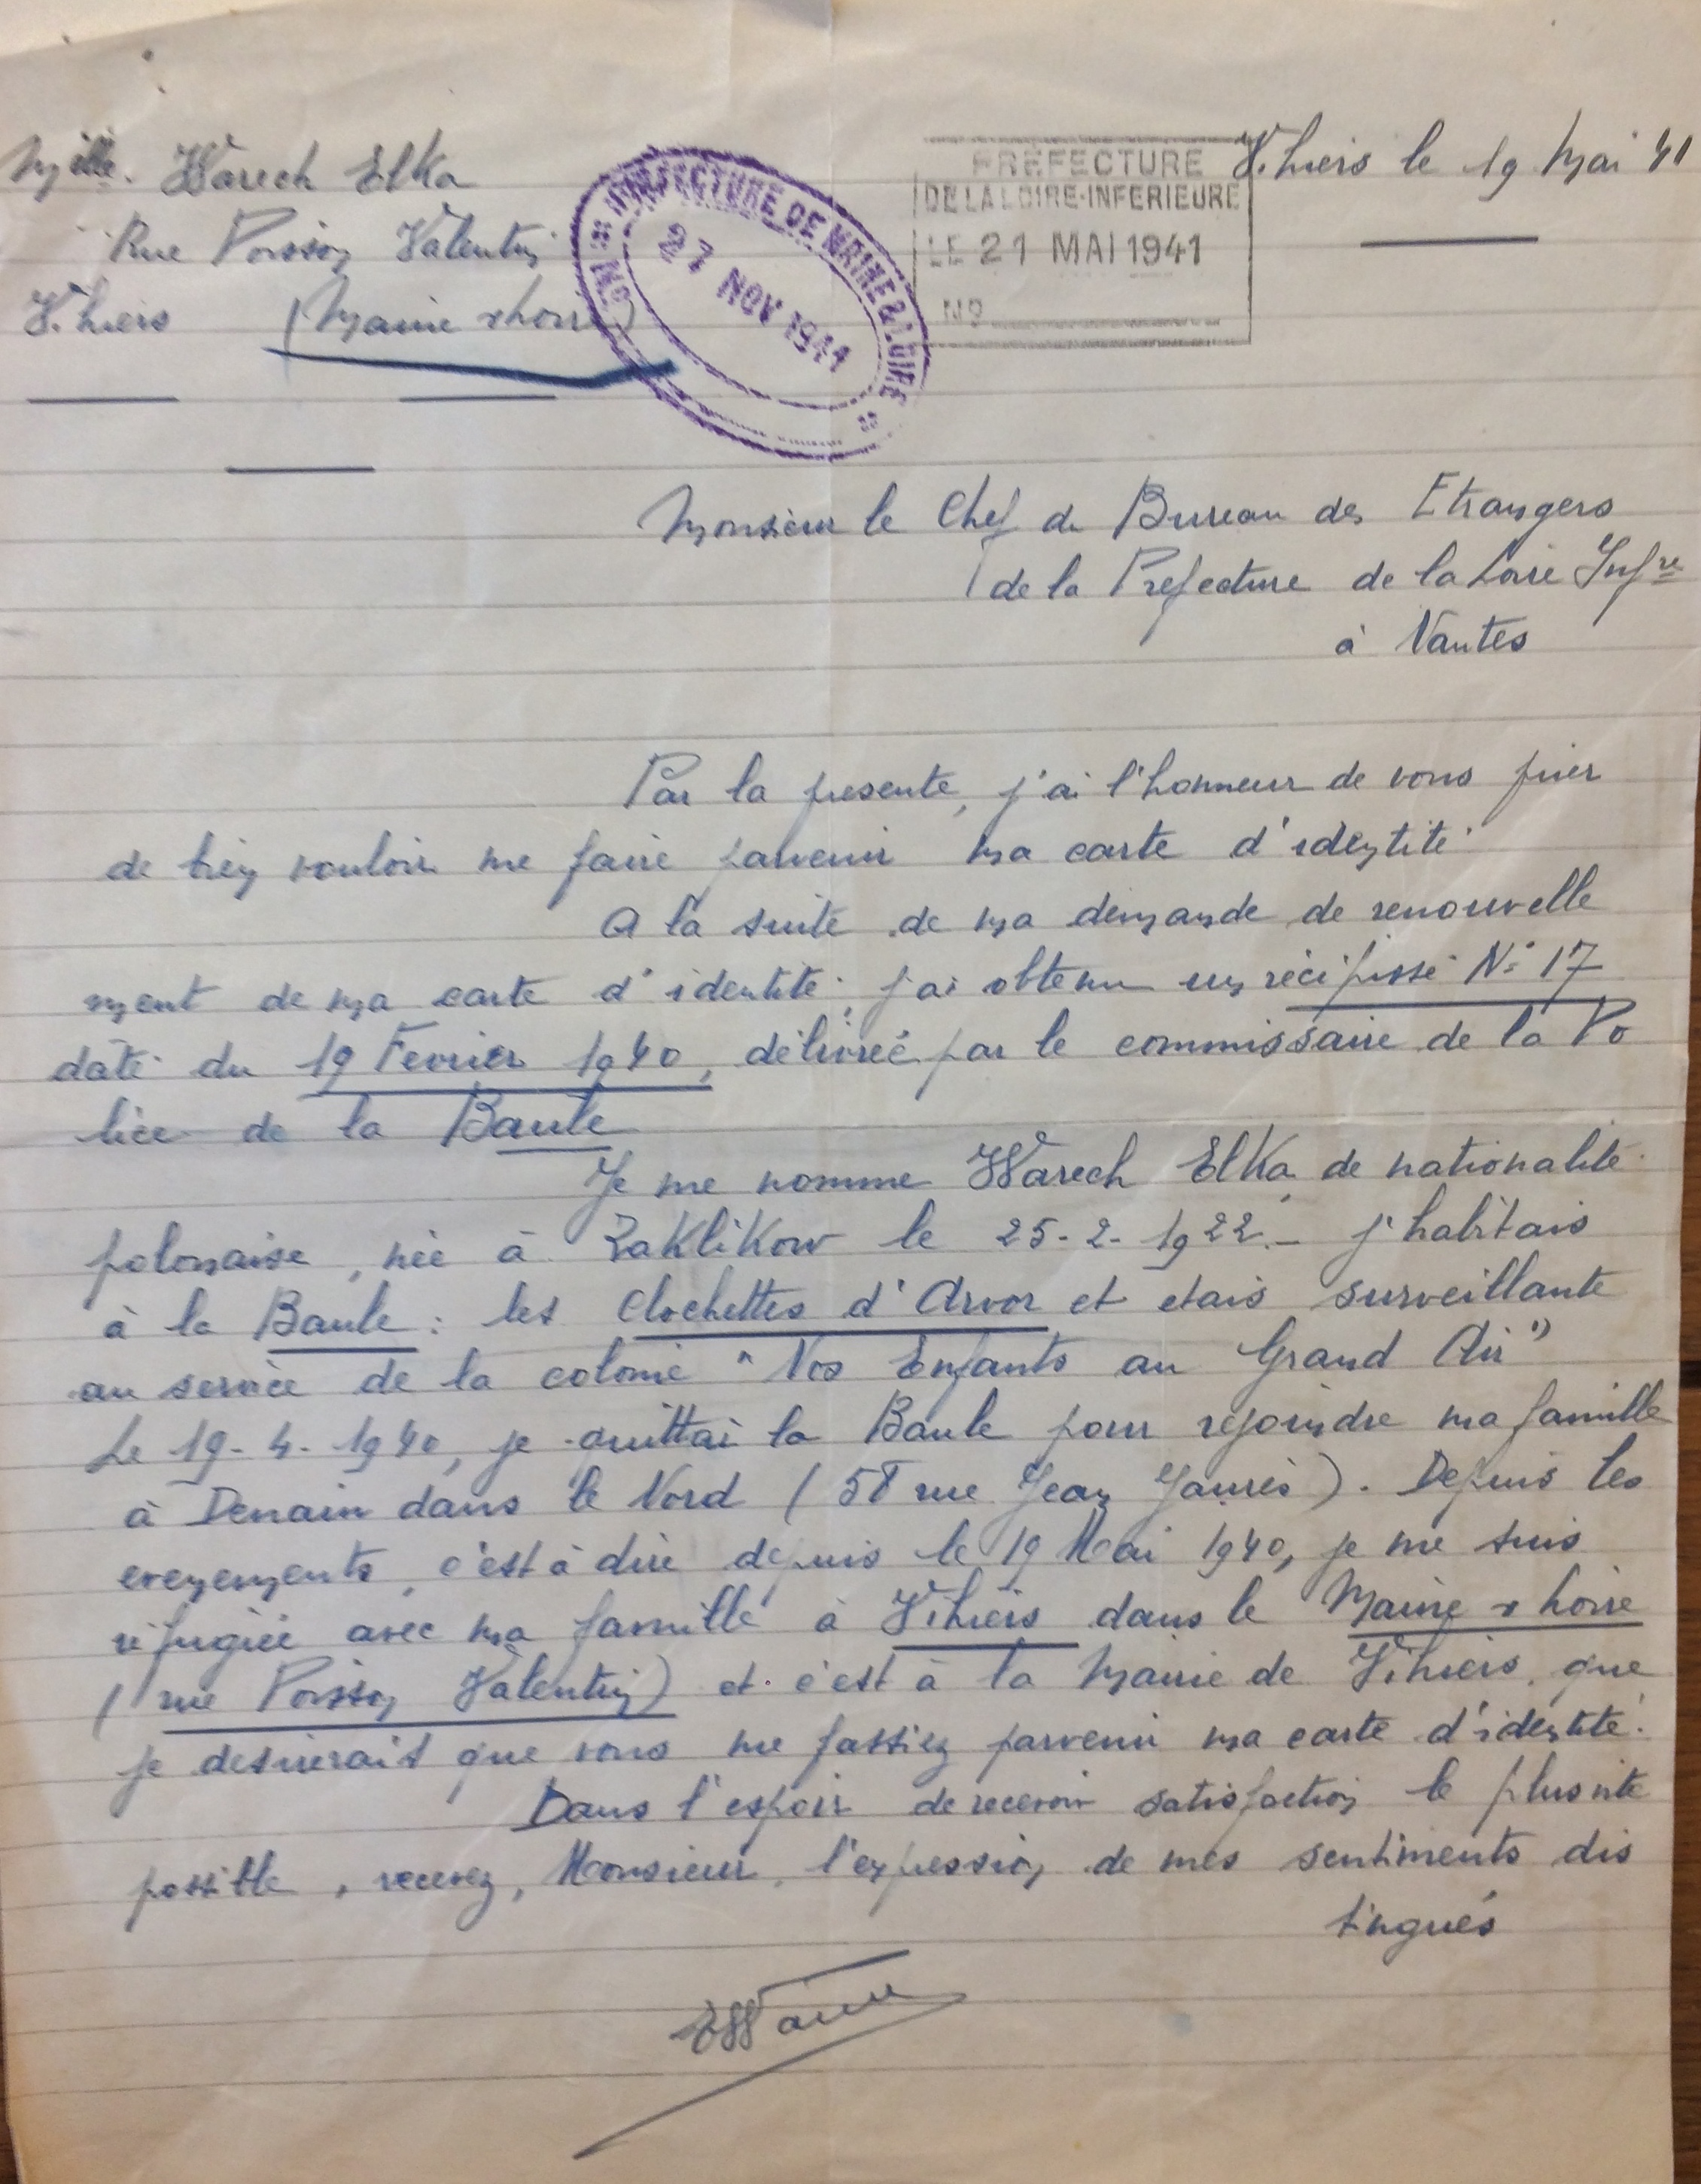 Melle. Warech Elka
Rue Poisson Valentin
Vihiers (Maine & Loire)
PREFECTURE DE MAINE & LOIRE
27 NOV 1941
PRÉFECTURE
DE LA LOIRE-INFERIEURE
LE 21 MAI 1941
No
Vihiers le 19 Mai 41
Monsieur le Chef du Bureau des Etrangers
de la Prefecture de la Loire Infre
à Nantes
Par la presente, j'ai l'honneur de vous prier
de bien vouloir me faire parvenir ma carte d'identité
A la suite de ma demande de renouvelle
ment de ma carte d'identité, j'ai obtenu un récipissé N° 17
daté du 19 Fevrier 1940, délivrée par le commissaire de la Po
lice de la Baule
Je me nomme Warech Elka, de nationalité
polonaise, née à Zaklikow le 25-2-1922.- j'habitais
à la Baule : les Clochettes d'Arvor et etais surveillante
au service de la colonie "Nos Enfants au Grand Air"
Le 19-4-1940, je quittai la Baule pour rejoindre ma famille
à Denain dans le Nord (58 rue Jean Jaurès). Depuis les
evenements, c'est à dire depuis le 19 Mai 1940, je me suis
réfugiée avec ma famille à Vihiers dans le Maine & Loire
(rue Poisson Valentin) et c'est à la Mairie de Vihiers, que
je desirerait que vous me fassiez parvenir ma carte d'identité.
Dans l'espoir de recevoir satisfaction le plus vite
possible, recevez, Monsieur, l'expression de mes sentiments dis
tingués